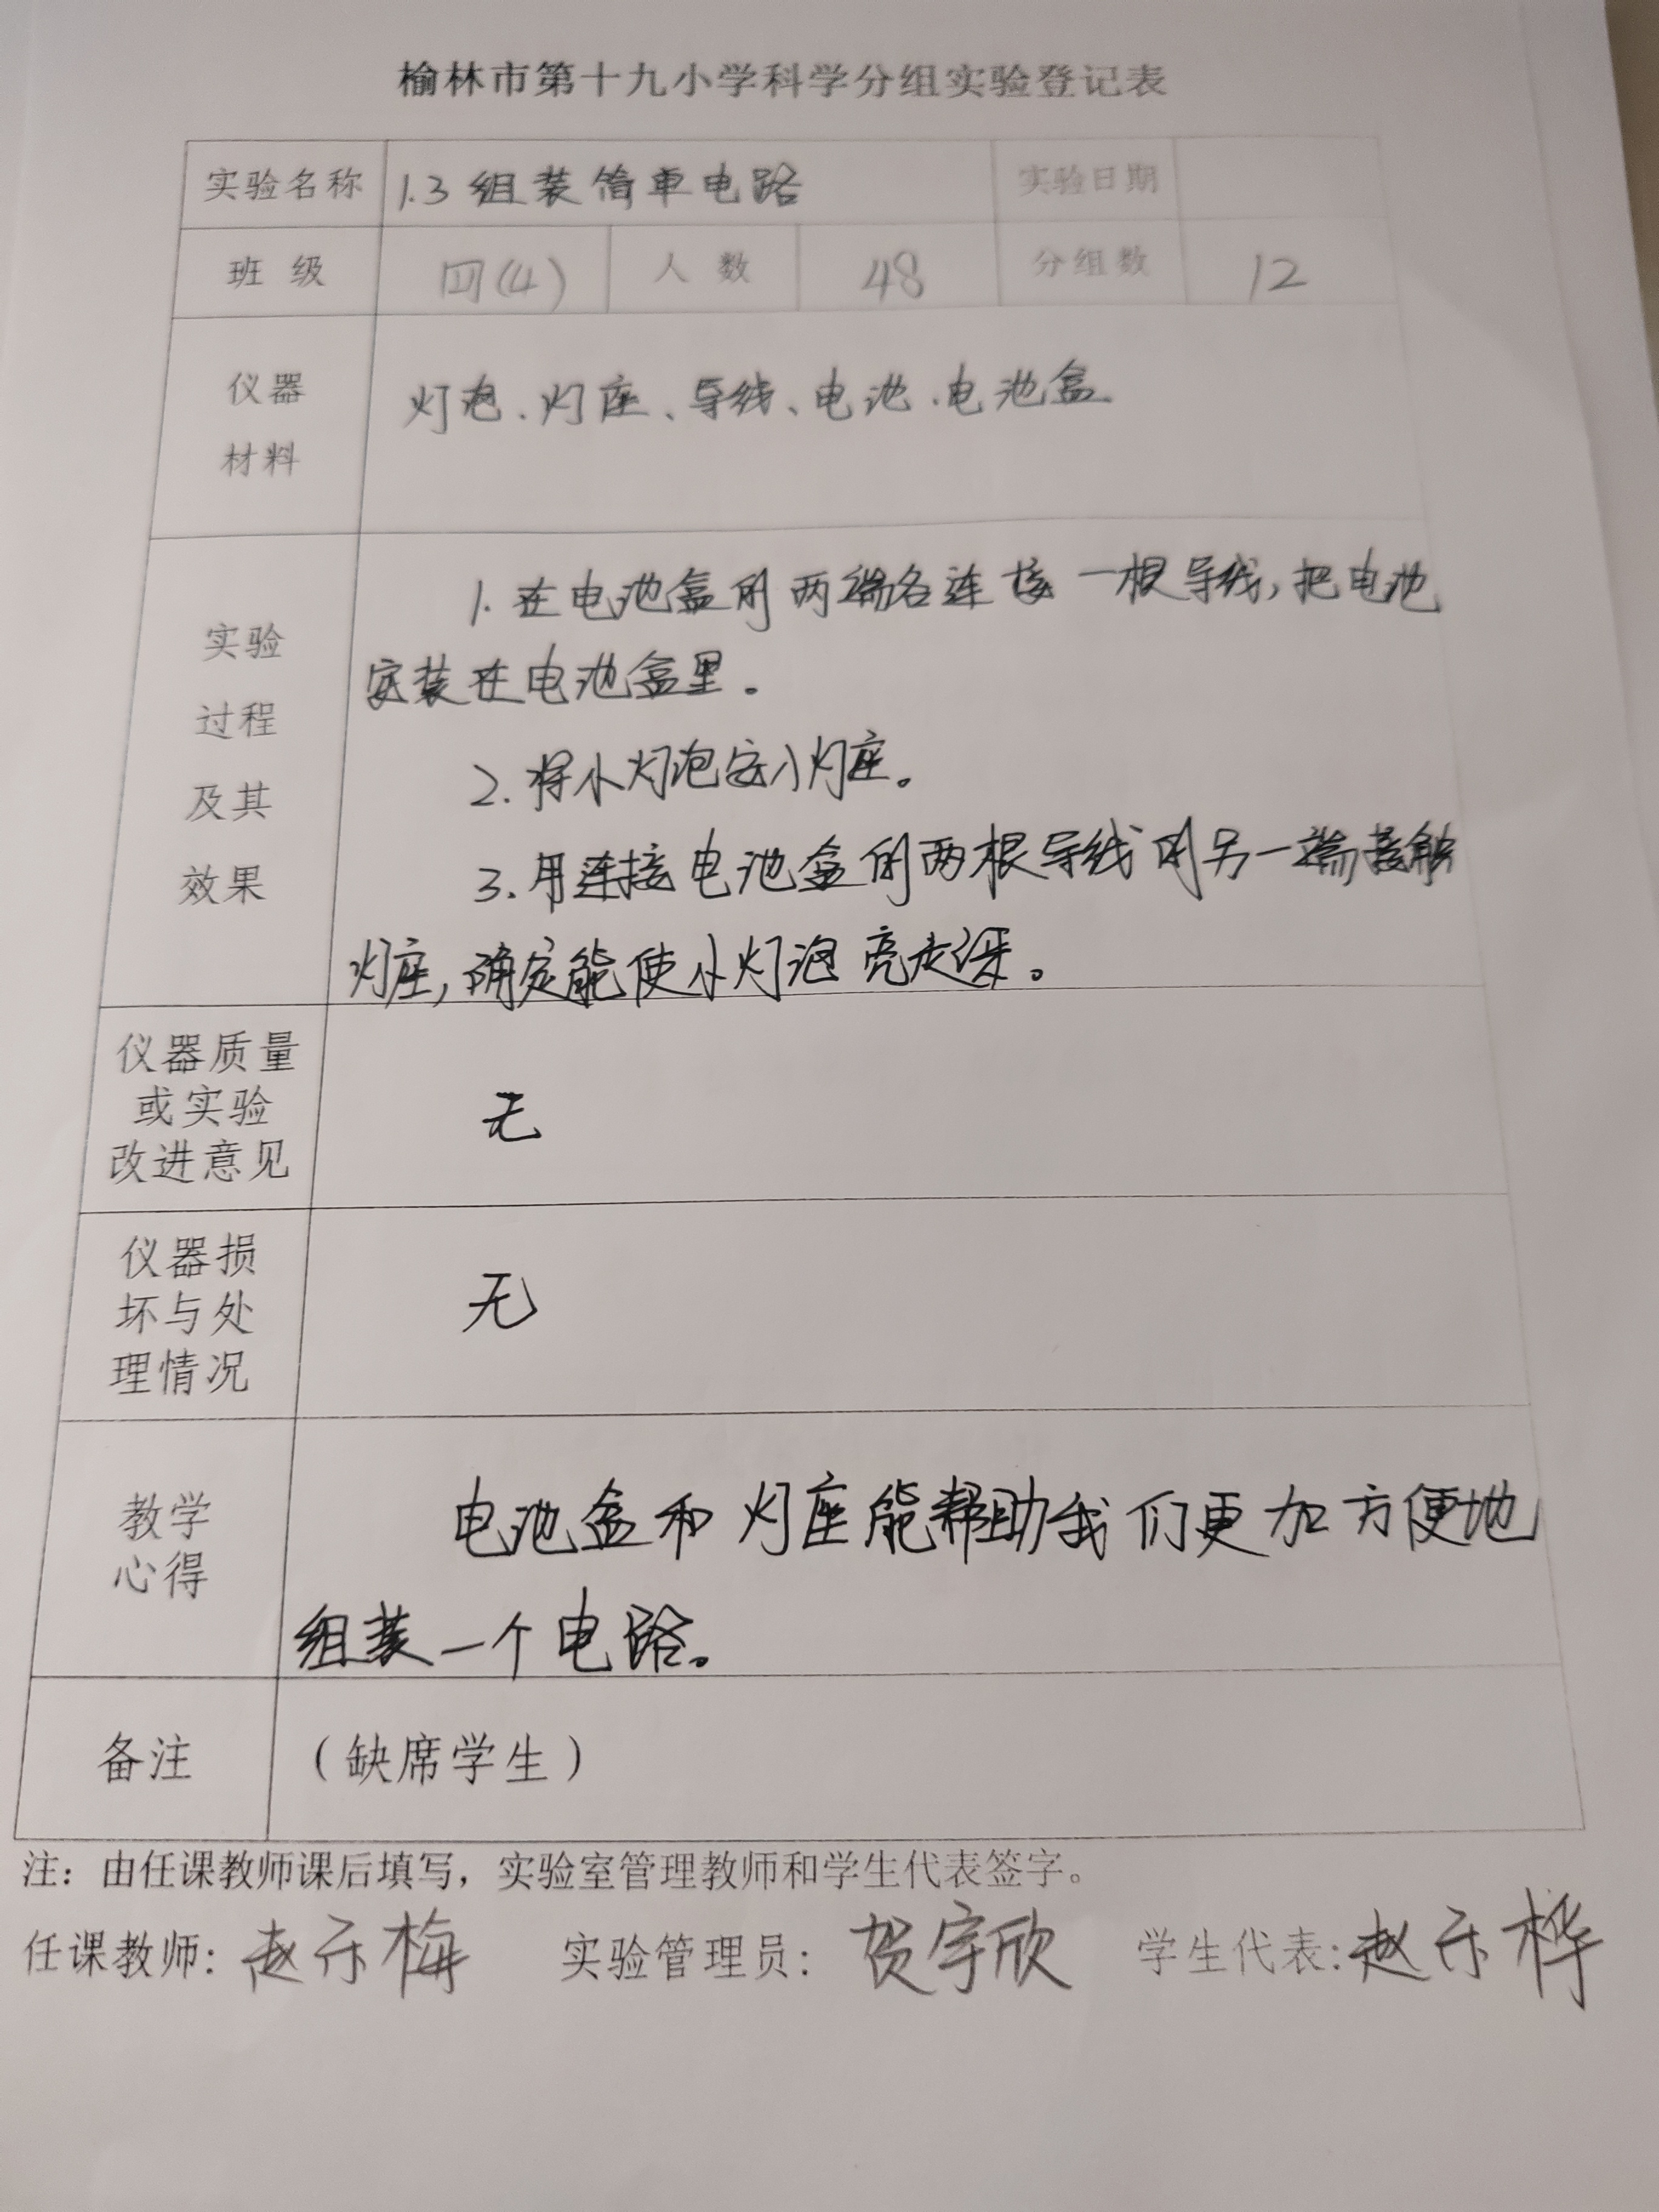 榆林市第十九小学科学分组实验登记表
实验名称 1.3 组装简单电路 实验日期
班级 四(4) 人数 48 分组数 12
仪器 材料 灯泡、灯座、导线、电池、电池盒
实验 过程 及其 效果
1. 在电池盒的两端各连接一根导线,把电池
安装在电池盒里。
2. 将小灯泡安入灯座。
3. 用连接电池盒的两根导线的另一端接触
灯座,确定能使小灯泡亮起来。
仪器质量
或实验
改进意见
无
仪器损
坏与处
理情况
无
教学
心得
电池盒和灯座能帮助我们更加方便地
组装一个电路。
备注 (缺席学生)
注:由任课教师课后填写,实验室管理教师和学生代表签字。
任课教师: 赵乐梅 实验管理员: 贺宇欣 学生代表: 赵乐桦